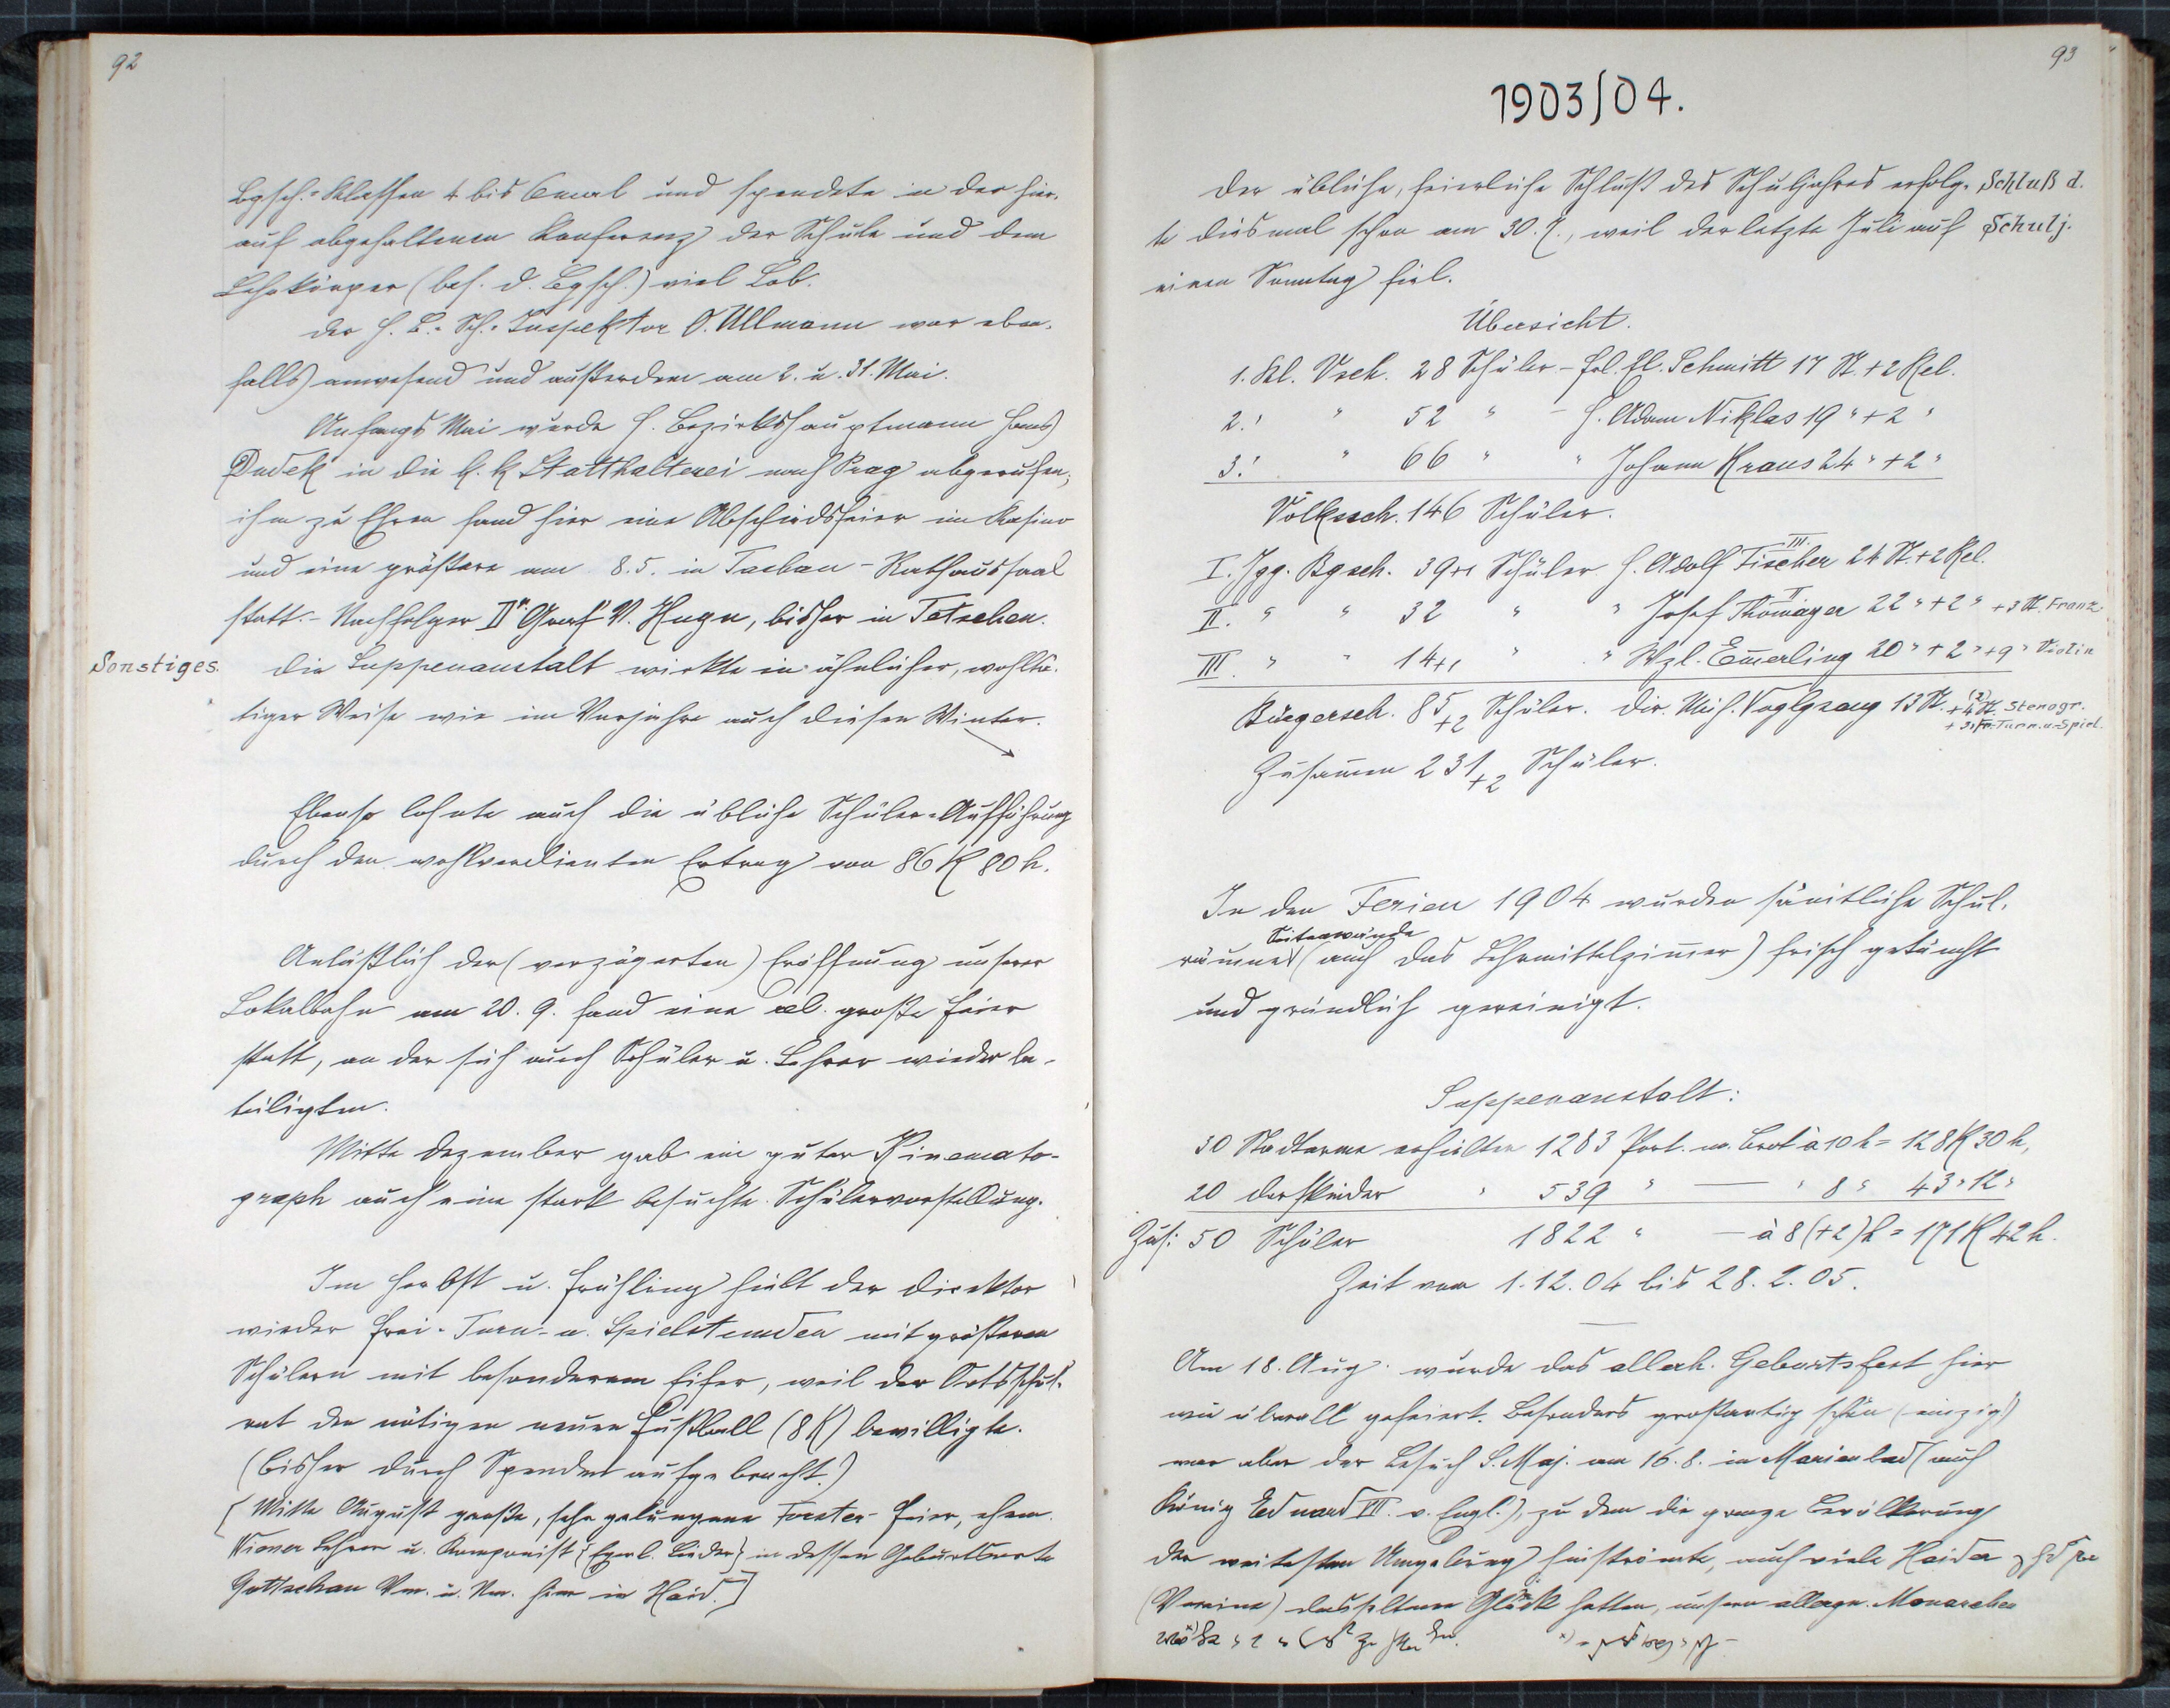 92
Bgsch.-Klassen 4 bis 6mal und spendete in der hier-
auf abgehaltenen Konferenz der Schule und dem
Lehrkörper (bes. d. Bgsch.) viel Lob.
Der H. B.-Sch.-Inspektor O. Ullmann war eben-
falls anwesend und außerdem am 2. u. 31. Mai.
Anfangs Mai wurde H. Bezirkshauptmann Hans
Dudek in die k. k. Statthalterei nach Prag abgerufen;
ihm zu Ehren fand hier eine Abschiedsfeier im Kasino
und eine größere am 8.5. in Tachau-Rathaussaal
statt. - Nachfolger Dr. Graf V. Huyn, bisher in Tetschen.
Sonstiges. Die Suppenanstalt wirkte in ähnlicher, wohltä-
tiger Weise wie im Vorjahre auch diesen Winter.
Ebenso lohnte auch die übliche Schüler-Aufführung
durch den wohlverdienten Ertrag von 86 K 80 h.
Anläßlich der (verzögerten) Eröffnung unserer
Lokalbahn am 20. 9. fand eine große Feier
statt, an der sich auch Schüler u. Lehrer wieder be-
teiligten.
Mitte Dezember gab ein guter Kinemato-
graph auch eine stark besuchte Schülervorstellung.
Im Herbst u. Frühling hielt der Direktor
wieder Frei-Turn- u. Spielstunden mit größeren
Schülern mit besonderem Eifer, weil der Ortsschul-
rat den nötigen neuen Fußball (8 K) bewilligte.
(Bisher durch Spenden aufgebracht!)
[Mitte August große, sehr gelungene Forster-Feier, ehem.
Wiener Lehrer u. Komponist {Egerl. Lieder} in dessen Geburtsorte
Gottschau Vm. u. Nm. hier in Haid.]
93
1903/04.
Der übliche, feierliche Schluß des Schuljahres erfolg- Schluß d.
te diesmal schon am 30. 7., weil der letzte Juli auf Schulj.
einen Sonntag fiel.
Übersicht.
1. Kl. Vsch. 28 Schüler - Frl. El. Schmitt 17 St. + 2 Rel.
2. " " 52 " - H. Adam Niklas 19 " + 2 "
3. " " 66 " " Johann Kraus 24 " + 2 "
Volkssch. 146 Schüler.
I. Jgg. Bgsch. 39+1 Schüler H. Adolf Fischer III. 24 St. + 2 Rel.
II. " " 32 " " Josef Thomayer II 22 " + 2 " + 3 St. Franz.
III. " " 14+1 " " Wzl. Em̄erling 20 " + 2 " + 9 " Violin
Bürgersch. 85+2 Schüler. Dir. Mich. Voglgsang 13 St. + 4 (2) St. Stenogr.
+ 3 Fr. Turn. u. Spiel.
Zusam̄en 231+2 Schüler.
In den Ferien 1904 wurden sämtliche Schul-
Seitenwände
räume (auch das Lehrmittelzim̄er) frisch getüncht
und gründlich gereinigt.
Suppenanstalt:
30 Stadtarme erhielten 1283 Port. m. Brot à 10 h = 128 K 30 h,
20 Dorfkinder " 539 " — " 8 " 43 " 12 "
Zus: 50 Schüler 1822 " — à 8 (+2) h = 171 K 42 h.
Zeit vom 1.12.04 bis 28.2.05.
Am 18. Aug. wurde das allerh. Geburtsfest hier
wie überall gefeiert. Besonders großartig schön (einzig!)
war aber der Besuch S. Maj. am 16. 8. in Marienbad (auch
König Eduard VII. v. Engl.), zu dem die ganze Bevölkerung
der weitesten Umgebung hinströmte, auch viele Haider
(Vereine) das seltene Glück hatten, unsern allergn. Monarchen